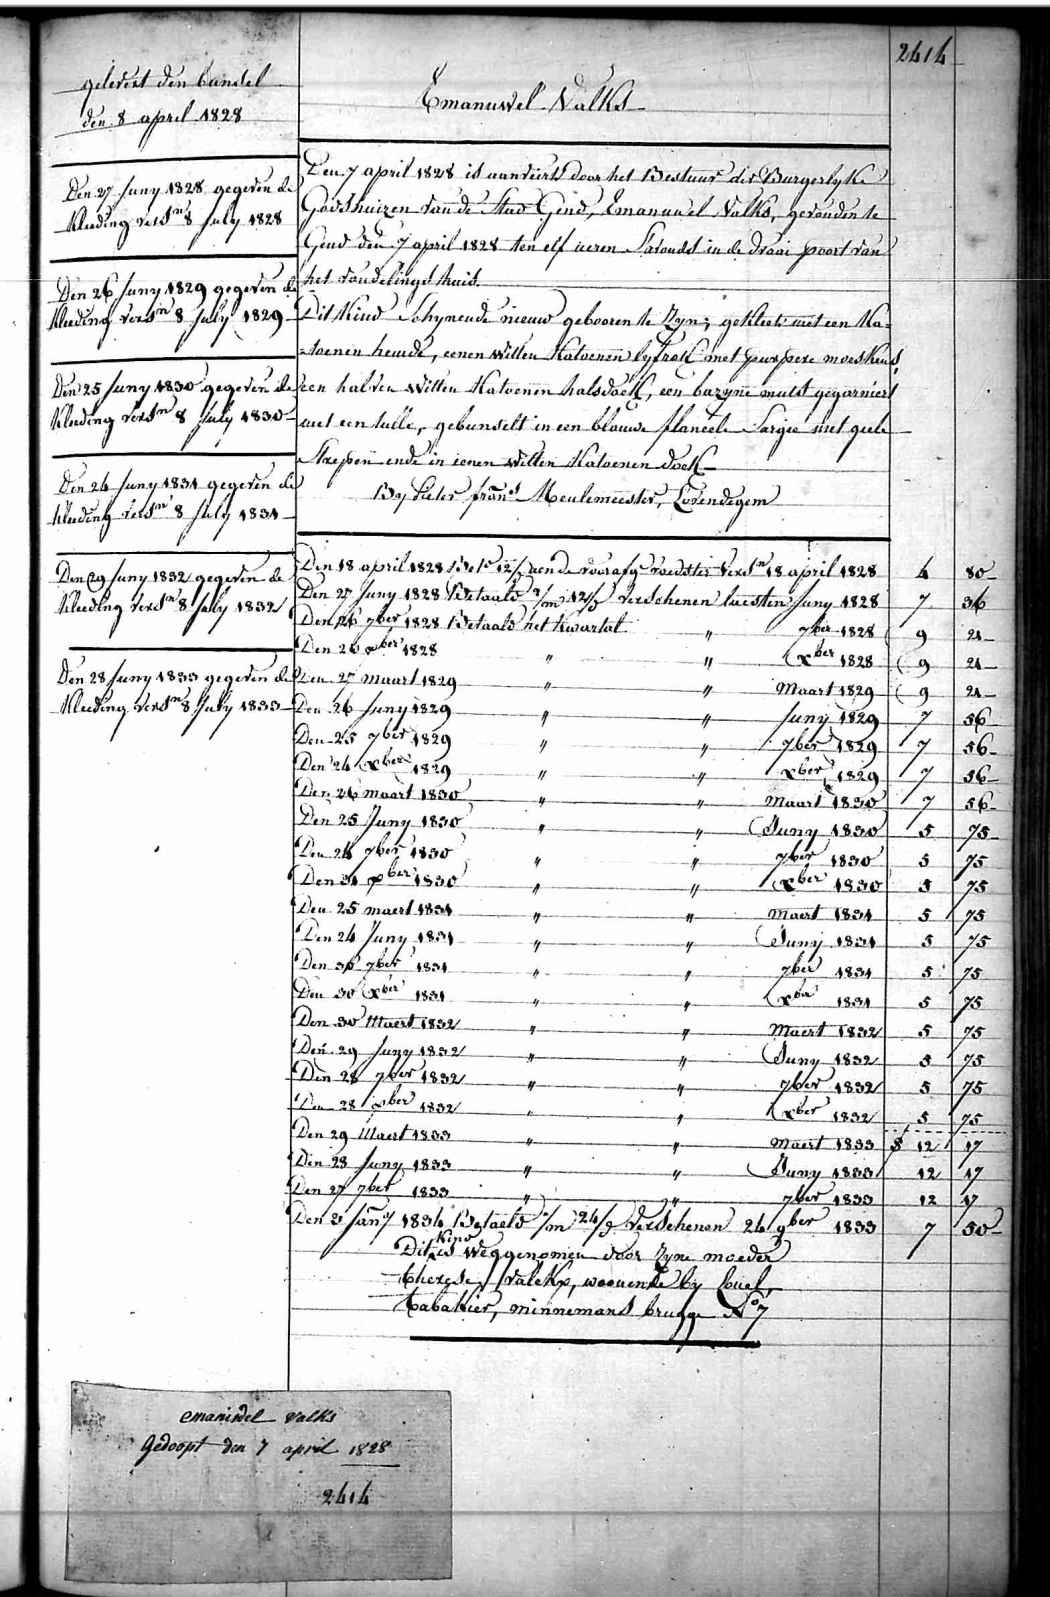 2414
gelevert den bundel
den 8 april 1828
Emanuwel Valks
Den 27 Juny 1828 gegeven de
kleeding versn 8 July 1828
Den 26 Juny 1829 gegeven de
kleeding versn 8 July 1829
Den 25 Juny 1830 gegeven de
kleeding versn 8 July 1830
Den 24 Juny 1831 gegeven de
kleeding versn 8 July 1831
Den 29 Juny 1832 gegeven de
kleeding versn 8 July 1832
Den 28 Juny 1833 gegeven de
kleeding versn 8 July 1833
Den 7 april 1828 is aanveirt door het Bestuur der Burgerlyke
Godshuizen van de Stad Gend, Emanuwel Valks, gevonden te
Gend den 7 april 1828 ten elf ueren s'avonds in de draai poort van
het vondelings huis.
Dit Kind Schynende nieuw gebooren te Zyn; gekleet met een Ka-
-toenen hemde, eenen witten Katoenen lyfrok met purpere moeskens,
een halven witten Katoenen halsdoek, een bazyne muts gegarniert
met een tulle, gebunselt in een blauwe flanele Sargie met geele
Strepen ende in eenen witten Katoenen doek
By Pieter frans Meulemeester, Lovendegem
Den 18 april 1828 12/9 aende voorafg. voedster versn 18 april 1828 4 80
Den 27 Juny 1828 Betaald 2/m 12/9 verschenen laesten Juny 1828 7 36
Den 26 7ber 1828 Betaald het Kwartal " 7ber 1828 9 24
Den 26 xber 1828 " " xber 1828 9 24
Den 27 maart 1829 " " Maart 1829 9 24
Den 26 Juny 1829 " " Juny 1829 7 56
Den 25 7ber 1829 " " 7ber 1829 7 56
Den 24 xber 1829 " " xber 1829 7 56
Den 26 maart 1830 " " Maart 1830 7 56
Den 25 Juny 1830 " " Juny 1830 5 75
Den 24 7ber 1830 " " 7ber 1830 5 75
Den 31 xber 1830 " " xber 1830 5 75
Den 25 maert 1831 " " Maert 1831 5 75
Den 24 Juny 1831 " " Juny 1831 5 75
Den 30 7ber 1831 " " 7ber 1831 5 75
Den 30 xber 1831 " " xber 1831 5 75
Den 30 Maert 1832 " " Maert 1832 5 75
Den 29 Juny 1832 " " Juny 1832 5 75
Den 28 7ber 1832 " " 7ber 1832 5 75
Den 28 xber 1832 " " xber 1832 5 75
Den 29 Maert 1833 " " Maert 1833 12 17
Den 28 Juny 1833 " " Juny 1833 12 17
Den 27 7ber 1833 " " 7ber 1833 12 17
Den 3 Jany 1834 Betaeld 1/m 24/9 verschenen 24 9ber 1833 7 50
Dit Kind is weggenomen door Zyne moeder
Therese Valckx, woonende by
Tabakier, minnemans brugge No 7
emanuel valks
Gedoopt den 7 april 1828
2414